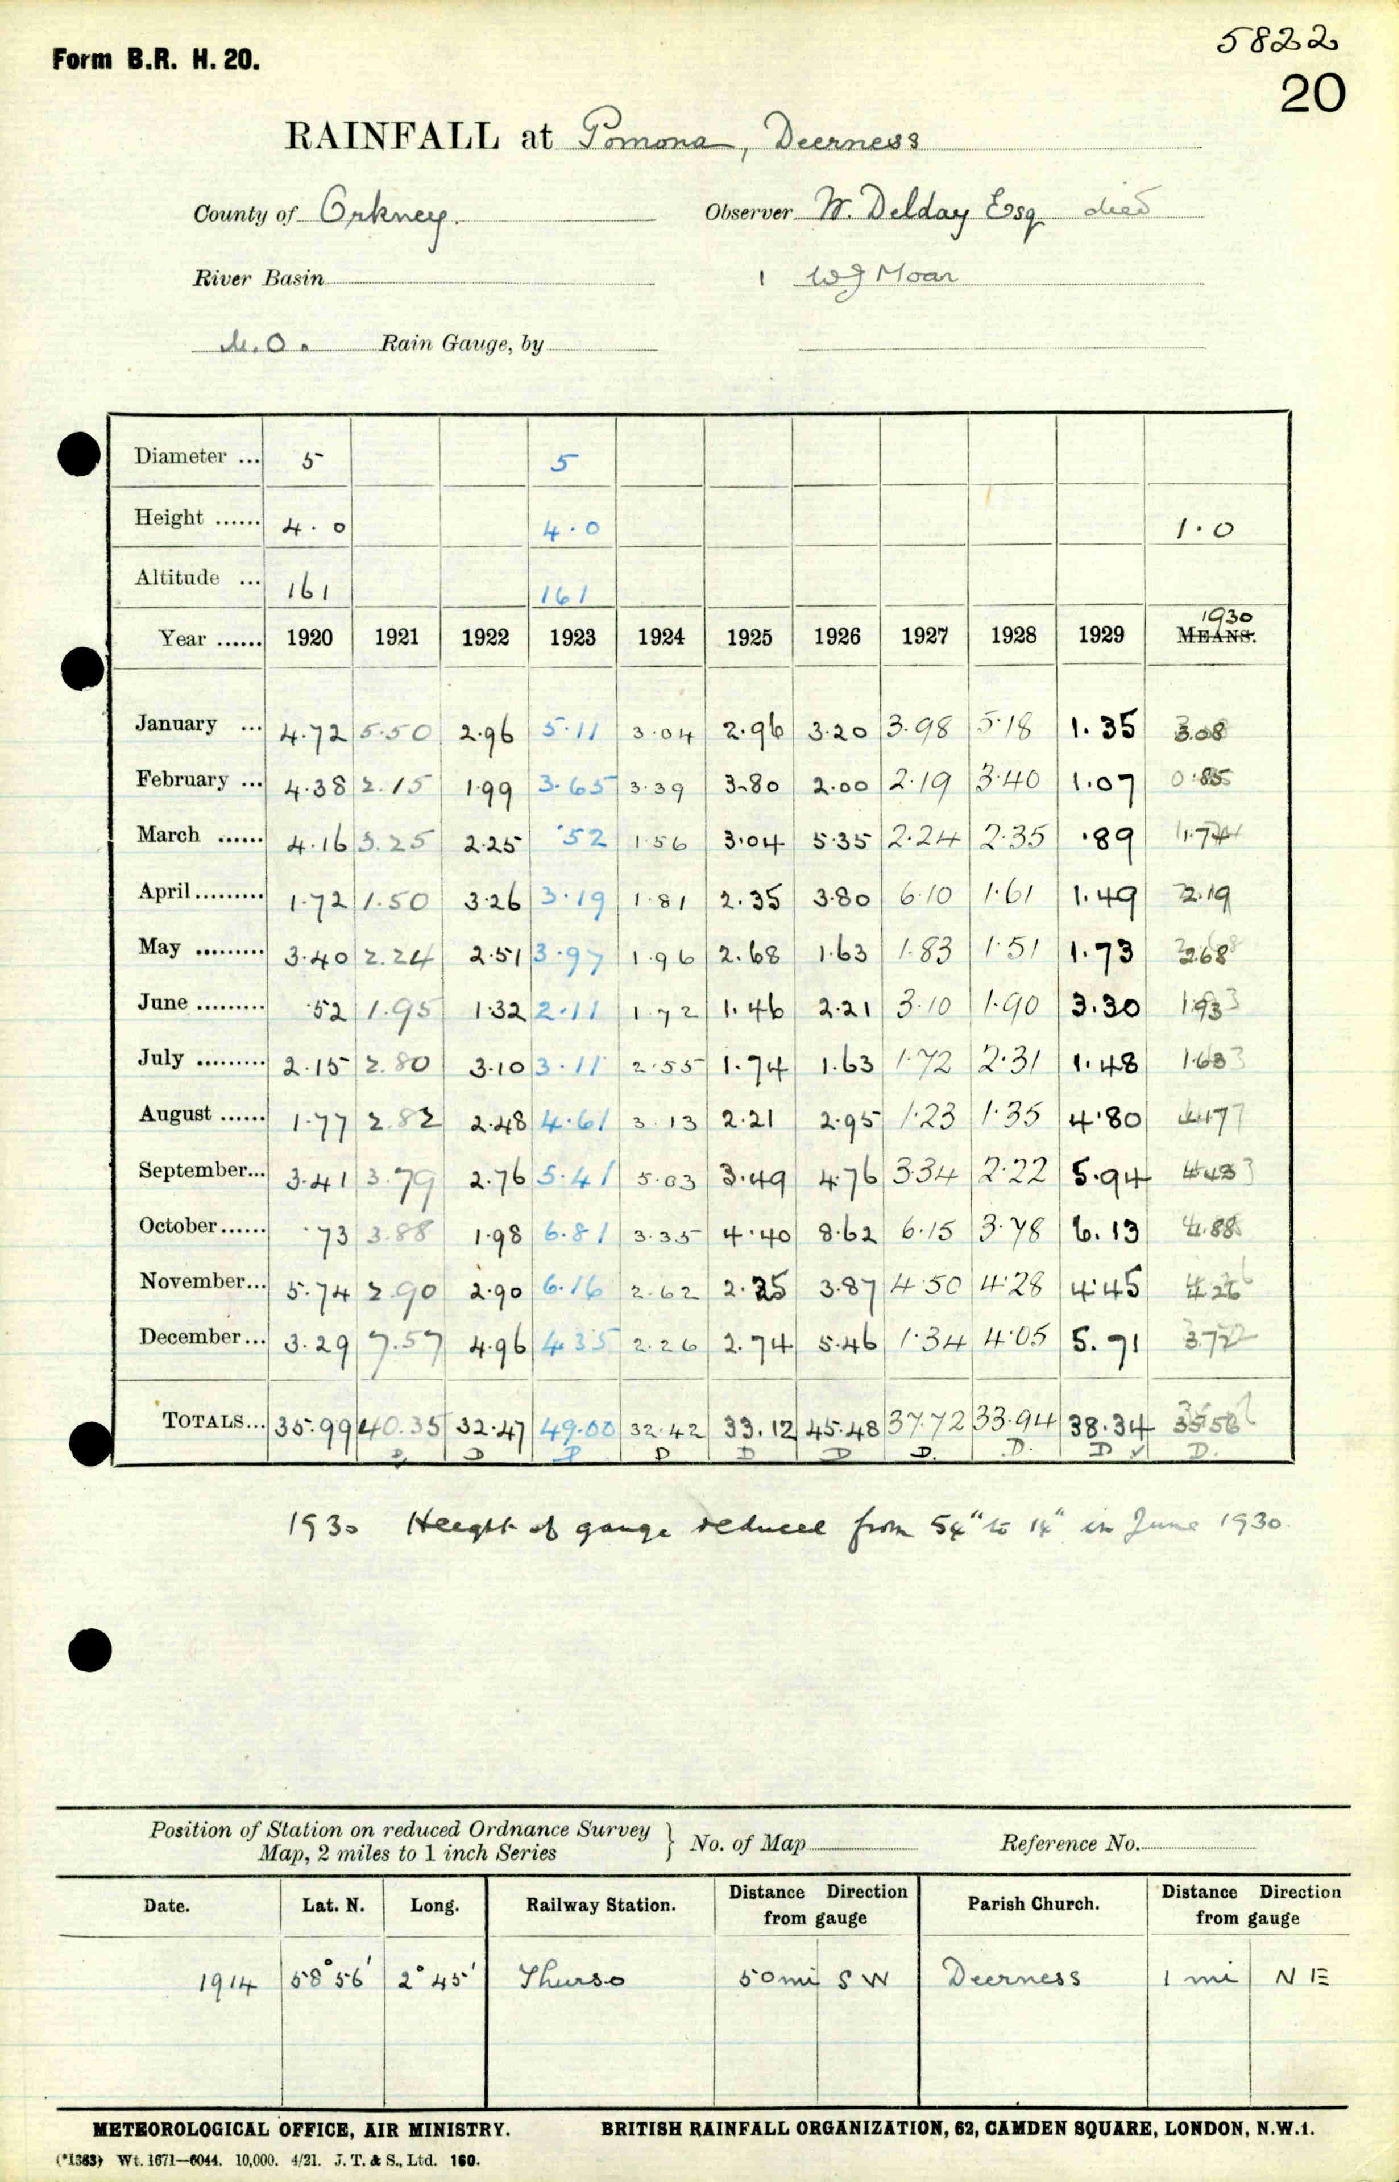 5822
Form B.R. H. 20.
20
RAINFALL at Pomona, Deerness
County of Orkney. Observer W. Delday Esq died
River Basin 1 W J Moar
M.O. Rain Gauge, by
Diameter ... 5 5
Height ...... 4.0 4.0 1.0
Altitude ... 161 161
Year ...... 1920 1921 1922 1923 1924 1925 1926 1927 1928 1929 MEANS. 1930
January ... 4.72 5.50 2.96 5.11 3.04 2.96 3.20 3.98 5.18 1.35 3.08
February ... 4.38 2.15 1.99 3.65 3.39 3.80 2.00 2.19 3.40 1.07 0.85
March ...... 4.16 3.25 2.25 .52 1.56 3.04 5.35 2.24 2.35 .89 1.74
April ......... 1.72 1.50 3.26 3.19 1.81 2.35 3.80 6.10 1.61 1.49 2.19
May ......... 3.40 2.24 2.51 3.97 1.96 2.68 1.63 1.83 1.51 1.73 2.68
June ......... .52 1.95 1.32 2.11 1.72 1.46 2.21 3.10 1.90 3.30 1.93
July ......... 2.15 2.80 3.10 3.11 2.55 1.74 1.63 1.72 2.31 1.48 1.63
August ...... 1.77 2.82 2.48 4.61 3.13 2.21 2.95 1.23 1.35 4.80 4.17
September... 3.41 3.79 2.76 5.41 5.03 3.49 4.76 3.34 2.22 5.94 4.43
October...... .73 3.88 1.98 6.81 3.35 4.40 8.62 6.15 3.78 6.13 4.88
November... 5.74 2.90 2.90 6.16 2.62 2.25 3.87 4.50 4.28 4.45 4.26
December... 3.29 7.57 4.96 4.35 2.26 2.74 5.46 1.34 4.05 5.71 3.72
TOTALS... 35.99 40.35 32.47 49.00 32.42 33.12 45.48 37.72 33.94 38.34 35.56
D D D D D D D. D. D ✓ D.
1930 Height of gauge reduced from 54" to 14" in June 1930.
Position of Station on reduced Ordnance Survey
Map, 2 miles to 1 inch Series } No. of Map Reference No.
Date. Lat. N. Long. Railway Station. Distance Direction from gauge Parish Church. Distance Direction from gauge
1914 58°56' 2°45' Thurso 50mi SW Deerness 1 mi NE
METEOROLOGICAL OFFICE, AIR MINISTRY. BRITISH RAINFALL ORGANIZATION, 62, CAMDEN SQUARE, LONDON, N.W.1.
(*1383) Wt. 1671—6044. 10,000. 4/21. J. T. & S., Ltd. 160.